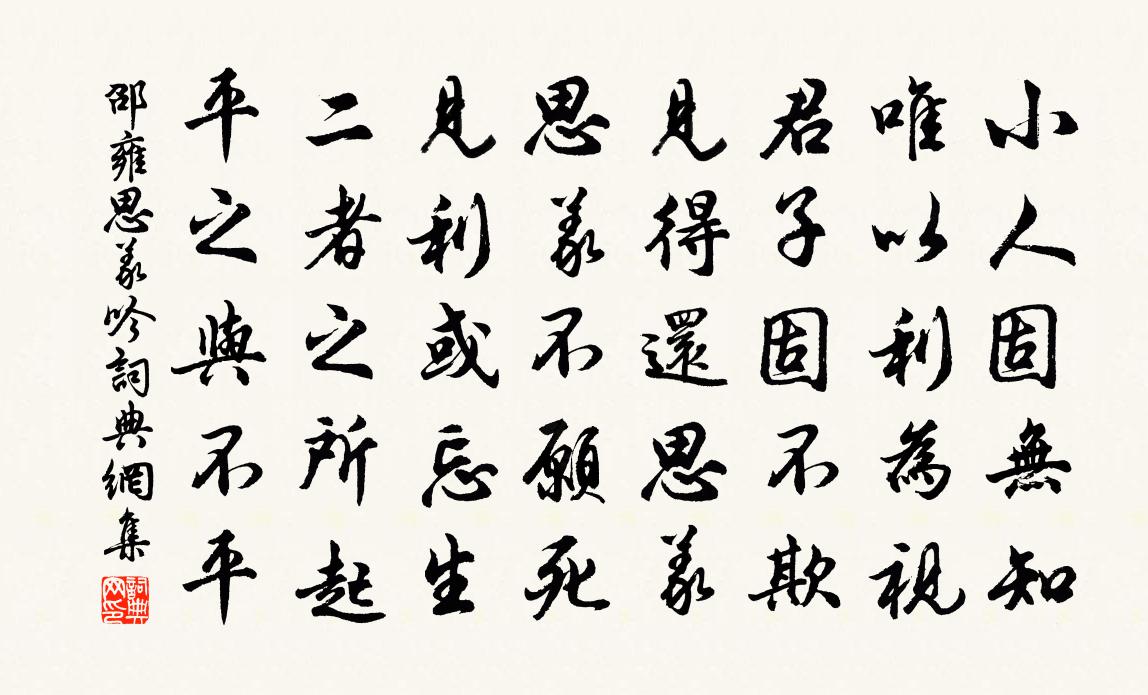 小人固無知
唯以利為視
君子固不欺
見得還思義
思義不願死
見利或忘生
二者之所起
平之與不平
邵雍思義吟詞典網集
詞典網印